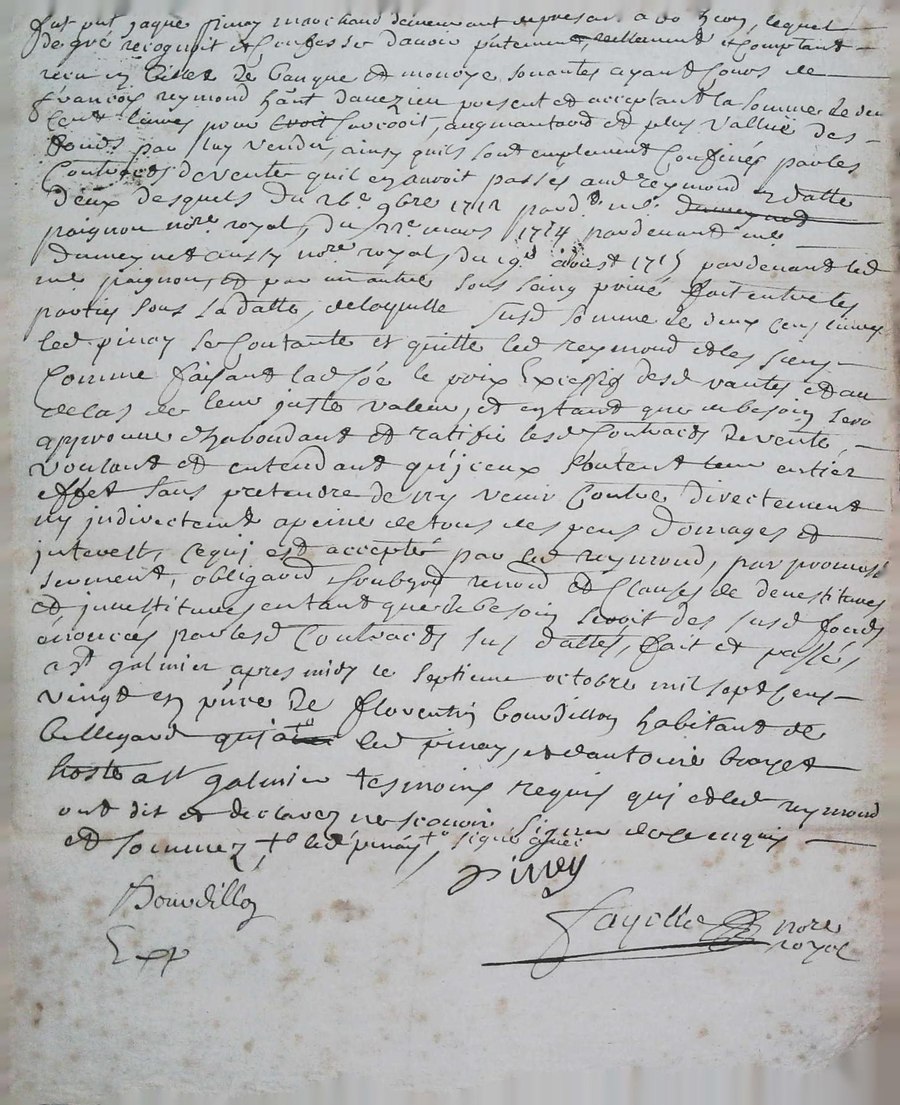 fut pnt jaque pinay marchand demeurant a lequel
de gré recognoit et confesse davoir pntement, reellement et comptant
receu en billet de banque et monoye sonantes ayant cours de
françois reymond hânt davezieu present et acceptant la somme de deux
cent livres pour surcroit, augmentaõn et plus vallüe des
fonds par luy vendu, ainsy quils sont emplement confinés par les
contracts de vente quil en auroit passes aud reymond datte
deux desquels du 26e. 9bre 1712 pard.t me.
paignon nore. royal, du mars 1714 pardevant me
dumeynet aussy nore royal, du 19e aoust 1715 pardevant led
me paignon, et par un autre sous saing privé fait entre les
parties sous sa datte, de laquelle susd somme de deux cens livres
led pinay se contante et quitte led reymond et les siens
comme faisant lad soe le prix excessif desd vantes et au
dela de leur juste valeur, et en tant que de besoin seroit
approuve dhabondant et ratifie lesd contracts de vente,
voulant et entendant quiceux sortent leur entier
effet sans pretendre de ny venir contre directement
ny indirectemt a peine de tous despens domages et
interest, ce qui est accepté par led reymond, par promesse
serment, obligaon soubgon renon et clauses de devestitures
et jnvestitures en tant que de besoin seroit des susd fonds
énoncés par lesd contracts sus dattés, fait et passés
a st galmier apres midy le septieme octobre mil sept cens
vingt en pnce de florentin bourdillon habitant de
bellegard qui a led pinay, et dantoine boyet
hoste a st galmier tesmoins requis qui et led reymond
ont dit et declarez ne scavoir signer de ce enquis
et sommez, led pinay signé avec
Pinay
Bourdillon
fayolle nore
royal
Exp